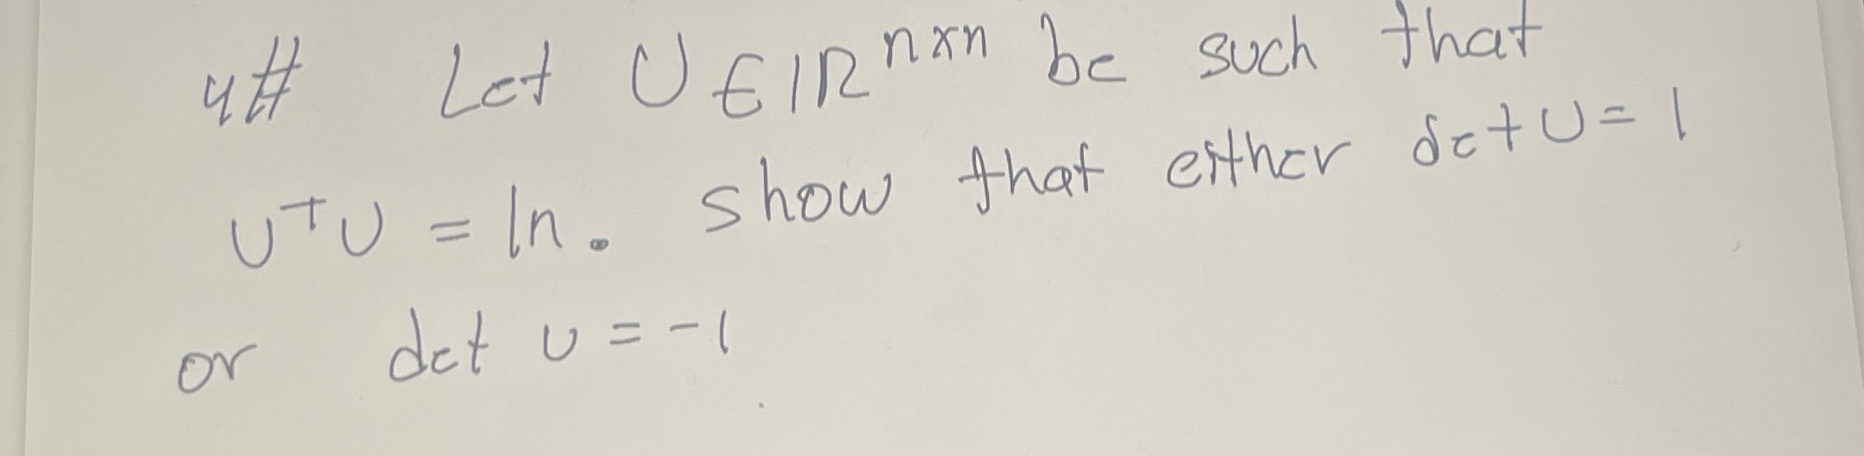 4# Let U ∈ ℝ^{n×n} be such that
U^T U = In. show that either det U = 1
or det U = -1